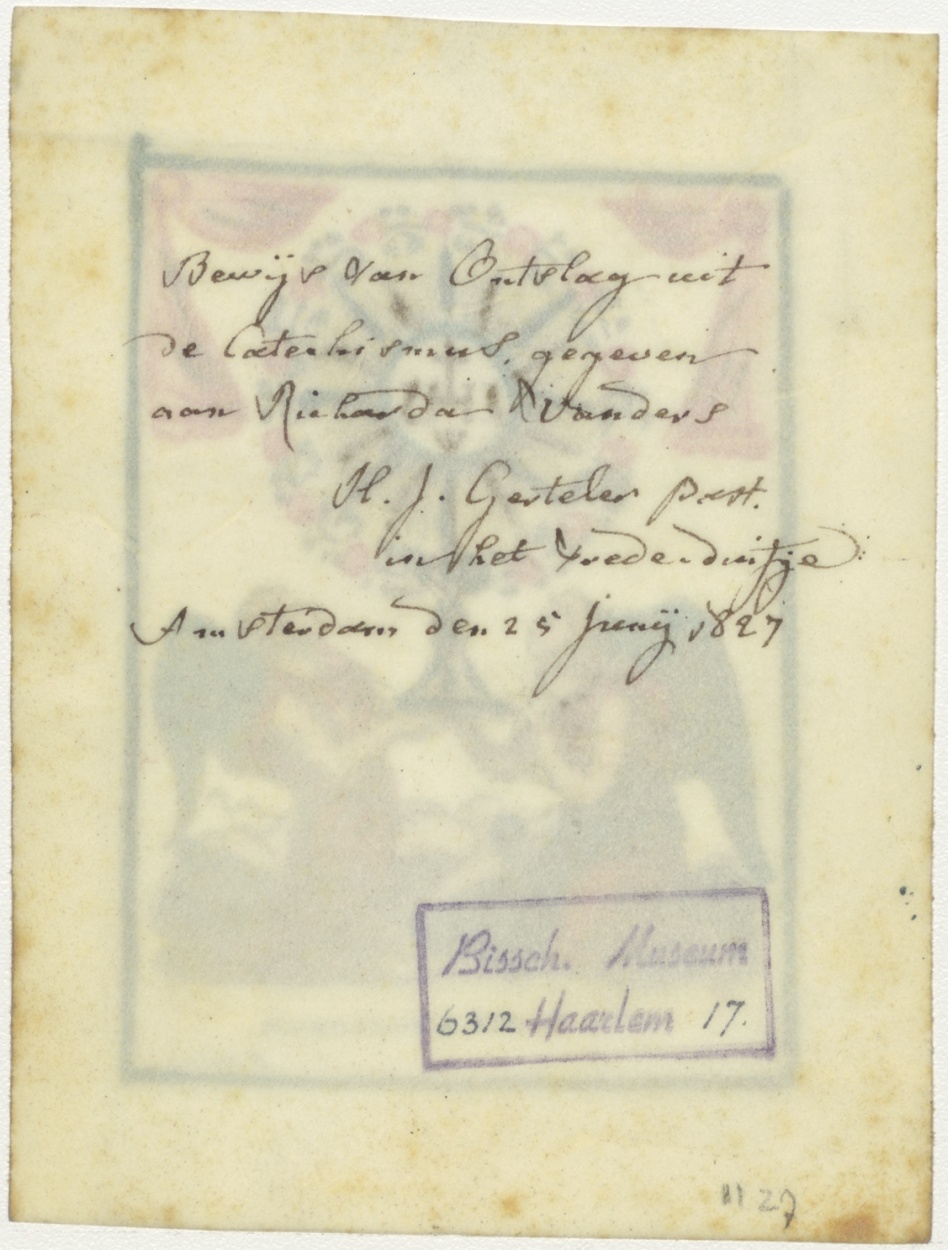 Bewijs van Ontslag uit
de Catechismus, gegeven
aan Richarda Vanders
H. J. Gerteler past.
in het Vrede-duifje
Amsterdam den 25 Junij 1827
Bissch. Museum
6312 Haarlem 17.
27